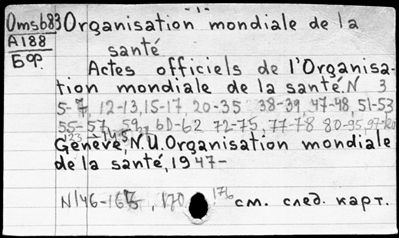 Oms683 Organisation mondiale de la
A188 santé
БФ.
Actes officiels de l'Organisa-
tion mondiale de la santé. N 3
5-7, 12-13, 15-17, 20-35 38-39, 47-48, 51-53
55-57, 59, 60-62 72-75, 77-78 80-95, 97-
Genève, N.U. Organisation mondiale
de la santé, 1947-
N 146-16, 170, 176 см. след. карт.